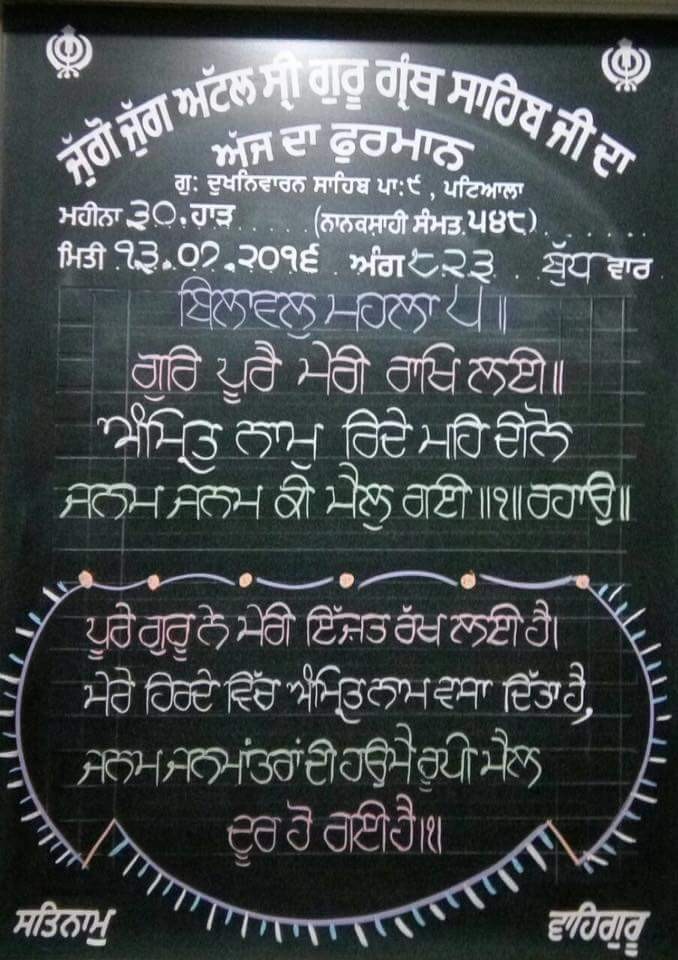 ਜੁੱਗੋ ਜੁੱਗ ਅਟੱਲ ਸ੍ਰੀ ਗੁਰੂ ਗ੍ਰੰਥ ਸਾਹਿਬ ਜੀ ਦਾ
ਅੱਜ ਦਾ ਫੁਰਮਾਨ
ਗੁ: ਦੁਖਨਿਵਾਰਨ ਸਾਹਿਬ ਪਾ:੯, ਪਟਿਆਲਾ
ਮਹੀਨਾ ੩੦.ਹਾੜ (ਨਾਨਕਸ਼ਾਹੀ ਸੰਮਤ ੫੪੮)
ਮਿਤੀ ੧੩.੦੭.੨੦੧੬ ਅੰਗ ੮੨੩ ਬੁੱਧ ਵਾਰ
ਬਿਲਾਵਲੁ ਮਹਲਾ ੫॥
ਗੁਰਿ ਪੂਰੈ ਮੇਰੀ ਰਾਖਿ ਲਈ॥
ਅੰਮ੍ਰਿਤ ਨਾਮੁ ਰਿਦੇ ਮਹਿ ਦੀਨੋ
ਜਨਮ ਜਨਮ ਕੀ ਮੈਲੁ ਗਈ॥੧॥ਰਹਾਉ॥
ਪੂਰੇ ਗੁਰੂ ਨੇ ਮੇਰੀ ਇੱਜਤ ਰੱਖ ਲਈ ਹੈ।
ਮੇਰੇ ਹਿਰਦੇ ਵਿੱਚ ਅੰਮ੍ਰਿਤ ਨਾਮ ਵਸਾ ਦਿੱਤਾ ਹੈ,
ਜਨਮ ਜਨਮਾਂਤਰਾਂ ਦੀ ਹਉਮੈ ਰੂਪੀ ਮੈਲ
ਦੂਰ ਹੋ ਗਈ ਹੈ।੧।
ਸਤਿਨਾਮੁ ਵਾਹਿਗੁਰੂ